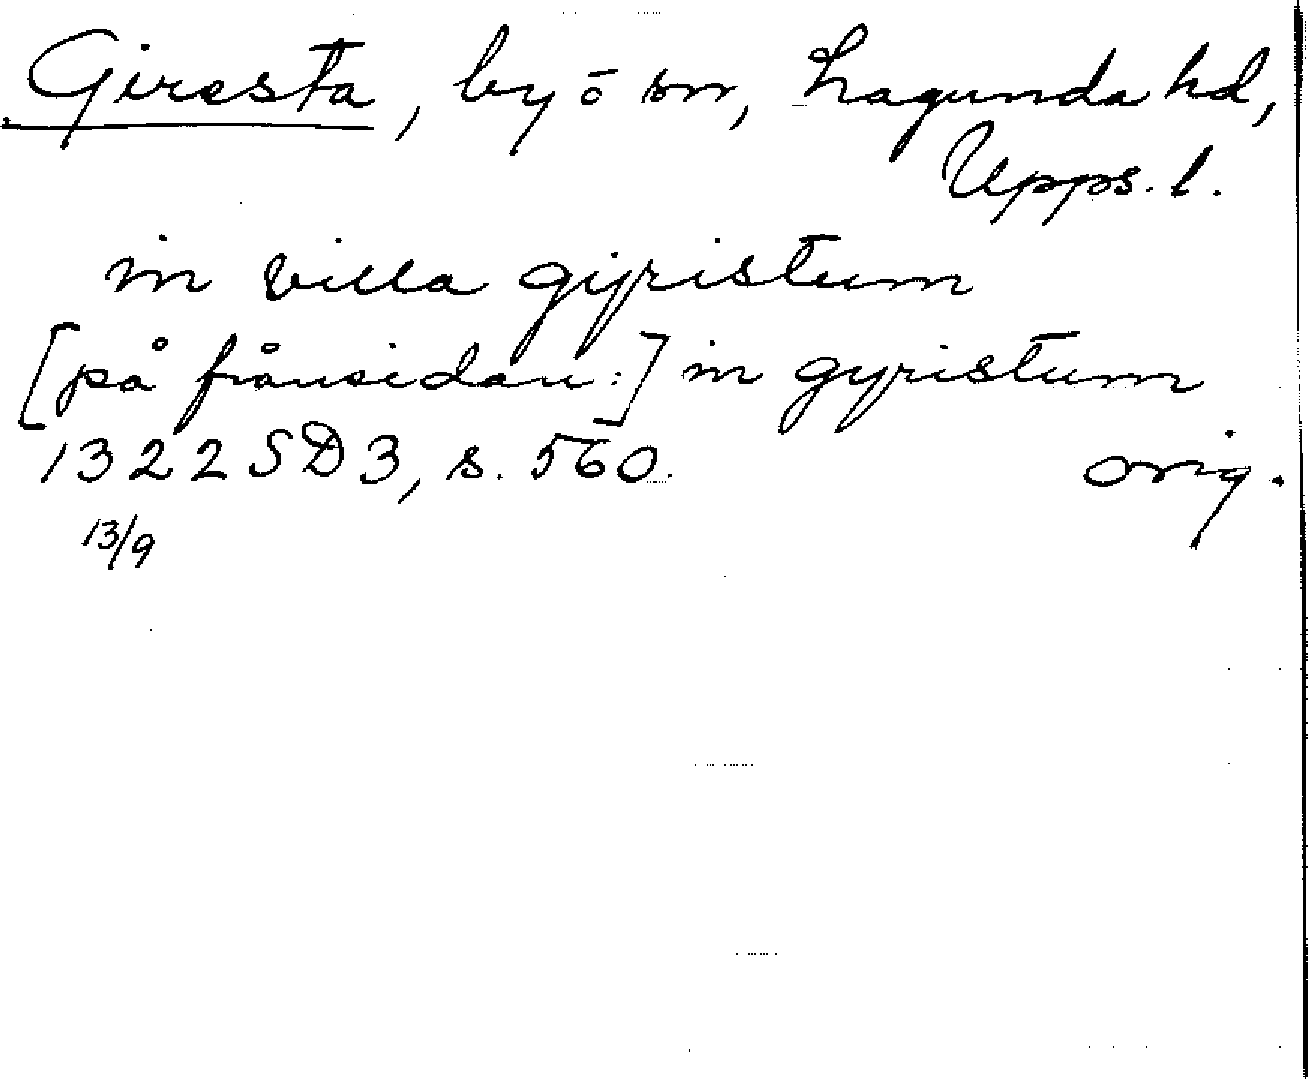 Giresta, by o sn, Lagunda hd,
Upps. l.
in villa gijristum
[på frånsidan:] in gyristum
1322 SD 3, s. 560. orig.
13/9